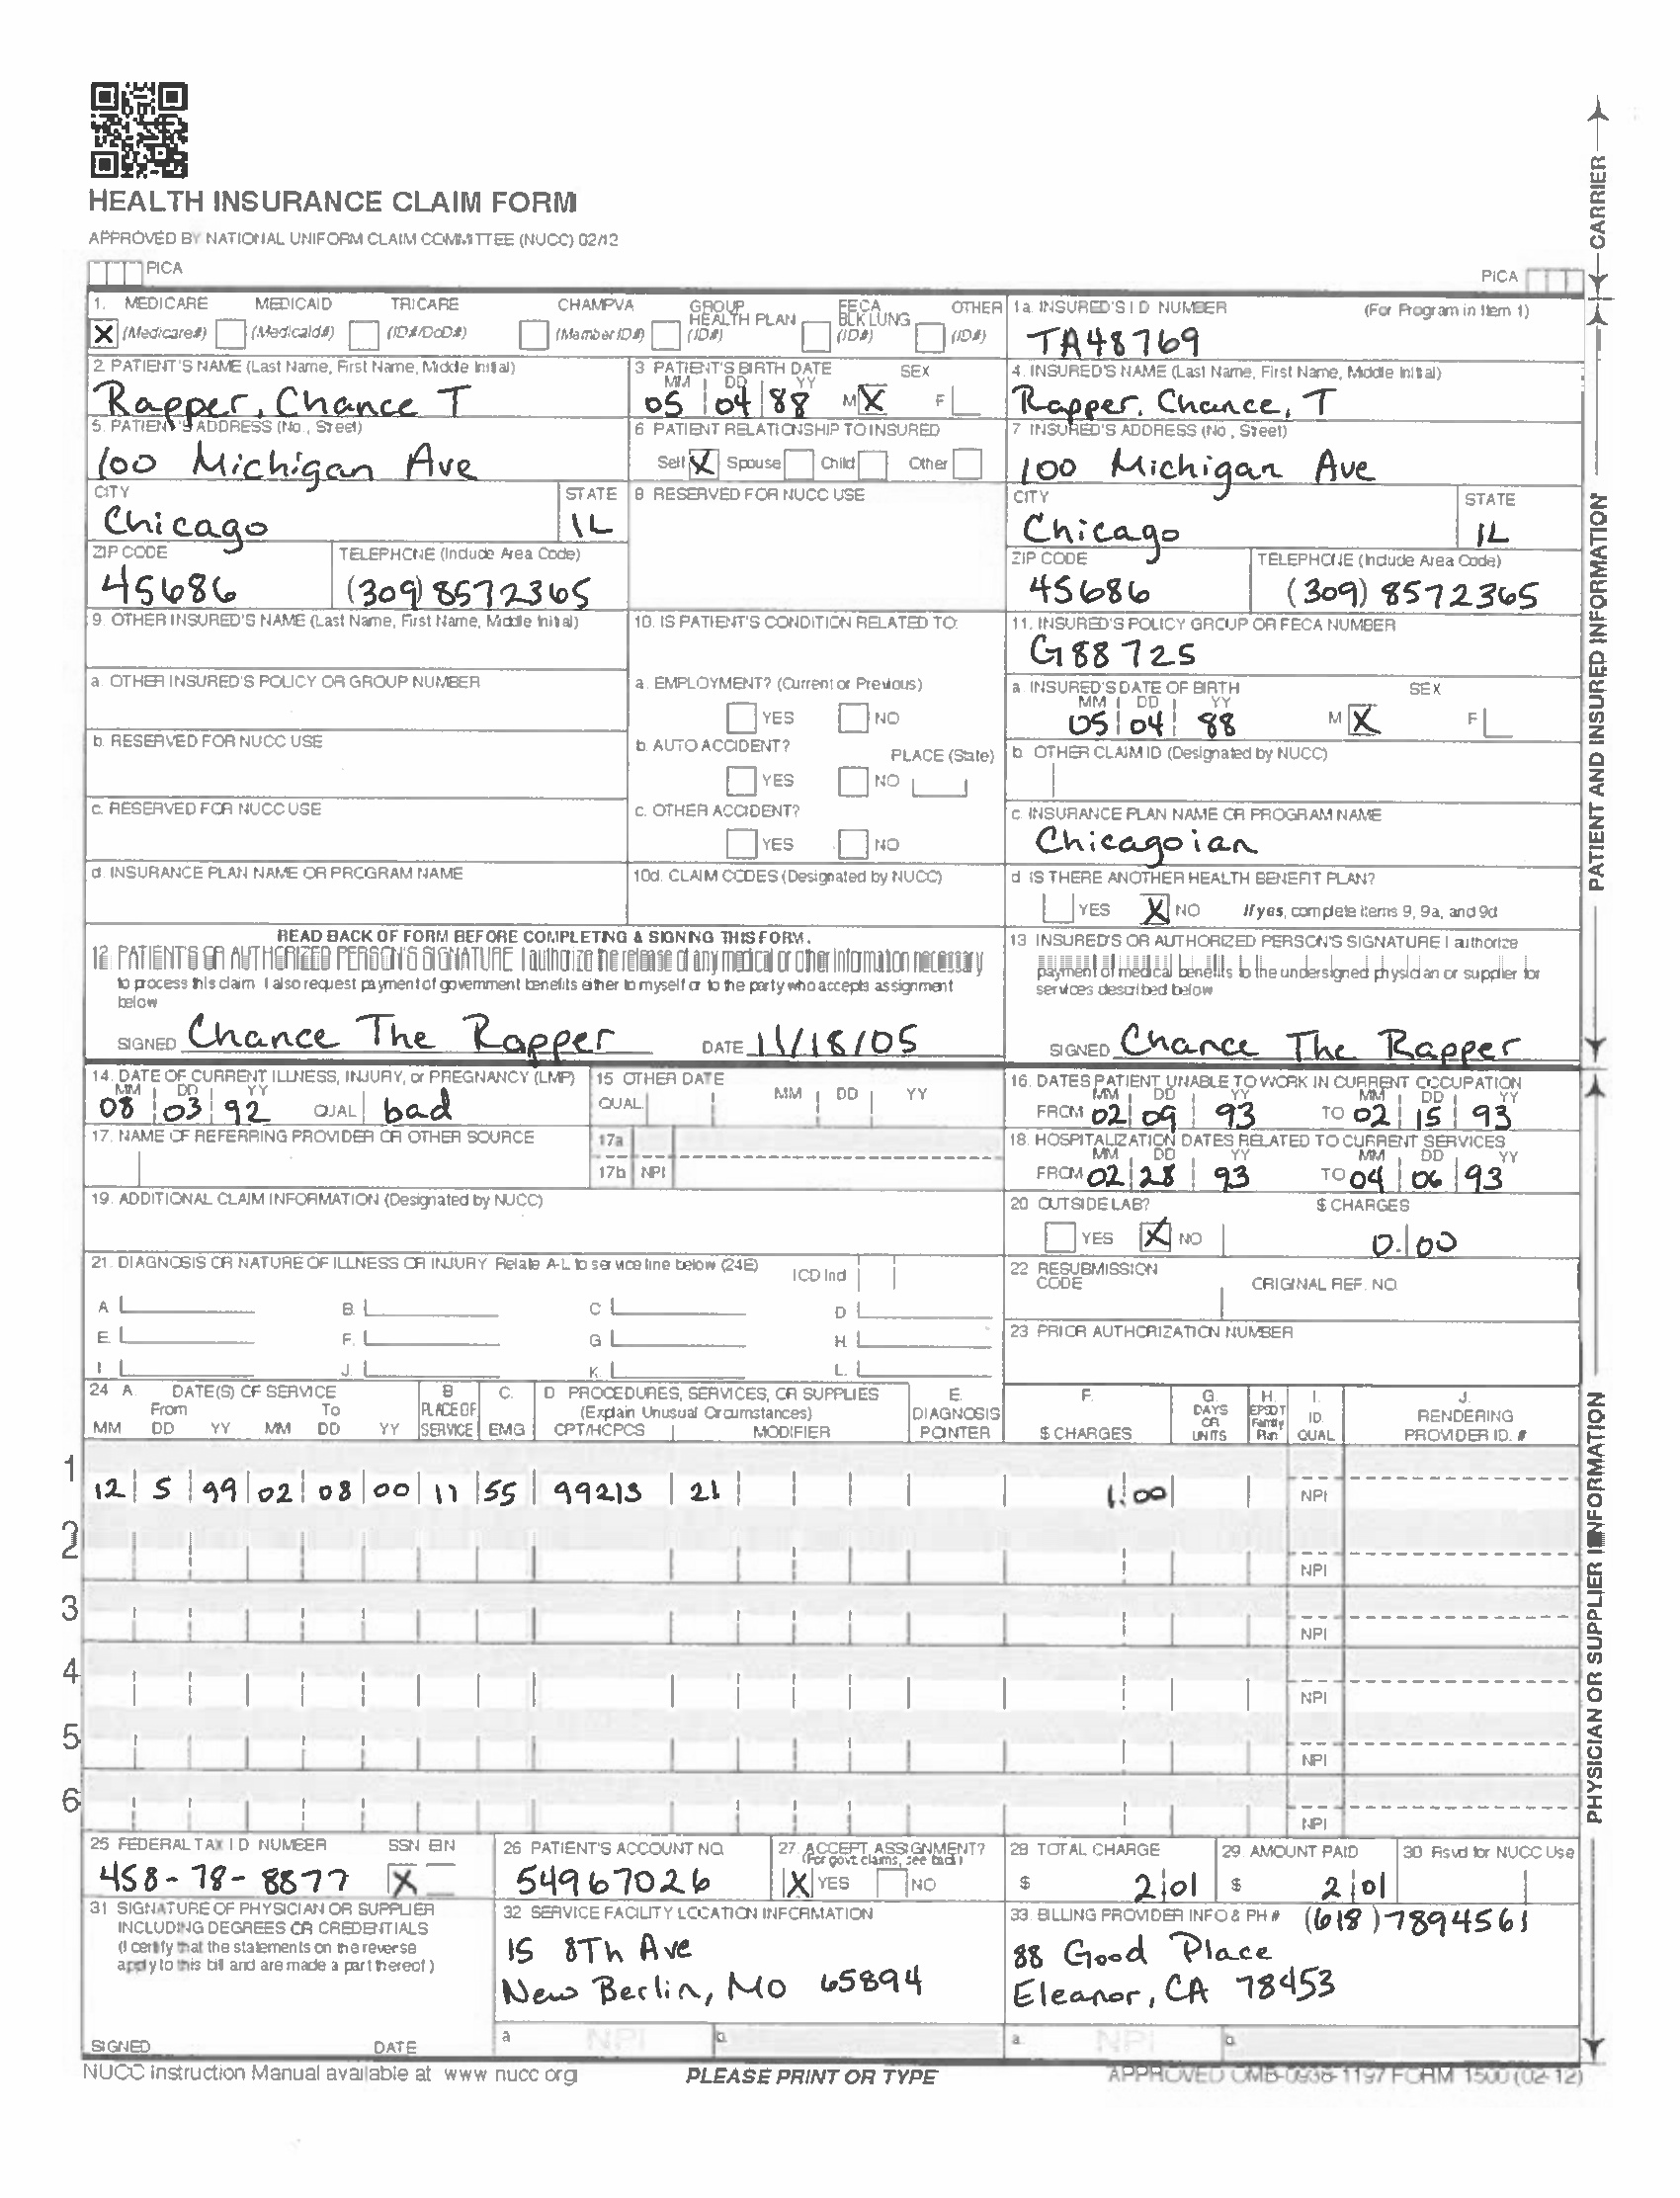 HEALTH INSURANCE CLAIM FORM
APPROVED BY NATIONAL UNIFORM CLAIM COMMITTEE (NUCC) 02/12
PICA
PICA
CARRIER
1. MEDICARE MEDICAID TRICARE CHAMPVA GROUP HEALTH PLAN FECA BLK LUNG OTHER
X (Medicare#) (Medicaid#) (ID#/DoD#) (Member ID#) (ID#) (ID#) (ID#)
1a. INSURED'S I.D. NUMBER (For Program in Item 1)
TA48769
2. PATIENT'S NAME (Last Name, First Name, Middle Initial)
Rapper, Chance T
3. PATIENT'S BIRTH DATE SEX
MM DD YY
05 04 88 M X F
4. INSURED'S NAME (Last Name, First Name, Middle Initial)
Rapper, Chance, T
5. PATIENT'S ADDRESS (No., Street)
100 Michigan Ave
6. PATIENT RELATIONSHIP TO INSURED
Self X Spouse Child Other
7. INSURED'S ADDRESS (No., Street)
100 Michigan Ave
CITY STATE
Chicago IL
8. RESERVED FOR NUCC USE
CITY STATE
Chicago IL
ZIP CODE TELEPHONE (Include Area Code)
45686 (309) 8572365
ZIP CODE TELEPHONE (Include Area Code)
45686 (309) 8572365
9. OTHER INSURED'S NAME (Last Name, First Name, Middle Initial)
10. IS PATIENT'S CONDITION RELATED TO:
11. INSURED'S POLICY GROUP OR FECA NUMBER
G88725
a. OTHER INSURED'S POLICY OR GROUP NUMBER
a. EMPLOYMENT? (Current or Previous)
YES NO
a. INSURED'S DATE OF BIRTH SEX
MM DD YY
05 04 88 M X F
b. RESERVED FOR NUCC USE
b. AUTO ACCIDENT? PLACE (State)
YES NO
b. OTHER CLAIM ID (Designated by NUCC)
c. RESERVED FOR NUCC USE
c. OTHER ACCIDENT?
YES NO
c. INSURANCE PLAN NAME OR PROGRAM NAME
Chicagoian
d. INSURANCE PLAN NAME OR PROGRAM NAME
10d. CLAIM CODES (Designated by NUCC)
d. IS THERE ANOTHER HEALTH BENEFIT PLAN?
YES X NO If yes, complete items 9, 9a, and 9d
PATIENT AND INSURED INFORMATION
READ BACK OF FORM BEFORE COMPLETING & SIGNING THIS FORM.
12. PATIENT'S OR AUTHORIZED PERSON'S SIGNATURE I authorize the release of any medical or other information necessary
to process this claim. I also request payment of government benefits either to myself or to the party who accepts assignment
below
SIGNED Chance The Rapper DATE 11/18/05
13. INSURED'S OR AUTHORIZED PERSON'S SIGNATURE I authorize
payment of medical benefits to the undersigned physician or supplier for
services described below
SIGNED Chance The Rapper
14. DATE OF CURRENT ILLNESS, INJURY, or PREGNANCY (LMP)
MM DD YY
08 03 92 QUAL bad
15. OTHER DATE
QUAL MM DD YY
16. DATES PATIENT UNABLE TO WORK IN CURRENT OCCUPATION
MM DD YY MM DD YY
FROM 02 09 93 TO 02 15 93
17. NAME OF REFERRING PROVIDER OR OTHER SOURCE
17a
17b NPI
18. HOSPITALIZATION DATES RELATED TO CURRENT SERVICES
MM DD YY MM DD YY
FROM 02 28 93 TO 04 06 93
19. ADDITIONAL CLAIM INFORMATION (Designated by NUCC)
20. OUTSIDE LAB? $ CHARGES
YES X NO 0.00
21. DIAGNOSIS OR NATURE OF ILLNESS OR INJURY Relate A-L to service line below (24E) ICD Ind
A. B. C. D.
E. F. G. H.
I. J. K. L.
22. RESUBMISSION CODE ORIGINAL REF. NO.
23. PRIOR AUTHORIZATION NUMBER
24. A. DATE(S) OF SERVICE B. C. D. PROCEDURES, SERVICES, OR SUPPLIES E. F. G. H. I. J.
From To PLACE OF (Explain Unusual Circumstances) DIAGNOSIS DAYS OR UNITS EPSDT Family Plan ID. QUAL RENDERING
MM DD YY MM DD YY SERVICE EMG CPT/HCPCS MODIFIER POINTER $ CHARGES PROVIDER ID. #
1 12 5 99 02 08 00 11 55 99213 21 1.00 NPI
2 NPI
3 NPI
4 NPI
5 NPI
6 NPI
PHYSICIAN OR SUPPLIER INFORMATION
25. FEDERAL TAX I.D. NUMBER SSN EIN
458-78-8877 X
26. PATIENT'S ACCOUNT NO.
54967026
27. ACCEPT ASSIGNMENT?
(For govt. claims, see back)
X YES NO
28. TOTAL CHARGE
$ 2 01
29. AMOUNT PAID
$ 2 01
30. Rsvd for NUCC Use
31. SIGNATURE OF PHYSICIAN OR SUPPLIER
INCLUDING DEGREES OR CREDENTIALS
(I certify that the statements on the reverse
apply to this bill and are made a part thereof.)
SIGNED DATE
32. SERVICE FACILITY LOCATION INFORMATION
15 8Th Ave
New Berlin, MO 65894
a. NPI b.
33. BILLING PROVIDER INFO & PH # (618)7894561
88 Good Place
Eleanor, CA 78453
a. NPI b.
NUCC Instruction Manual available at www nucc org
PLEASE PRINT OR TYPE
APPROVED OMB-0938-1197 FORM 1500 (02-12)